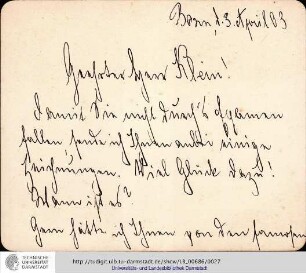 Bonn, d. 3. April 03
Geehrter Herr Klein!
Damit Sie nicht durch's Examen
fallen, sende ich Ihnen anbei einige
Zeichnungen. Viel Glück dazu!
Wann ist es?
Gern hätte ich Ihnen von den famosen
TECHNISCHE
UNIVERSITÄT
DARMSTADT
http://tudigit.ulb.tu-darmstadt.de/show/19_00686/0027
Universitäts- und Landesbibliothek Darmstadt